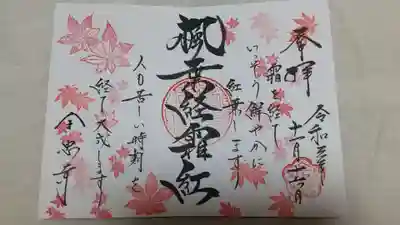 奉拝
令和三年
十一月十六日
霜を経て
いっそう鮮やかに
紅葉します
楓葉経霜紅
人も苦しい時期を
経て大成します